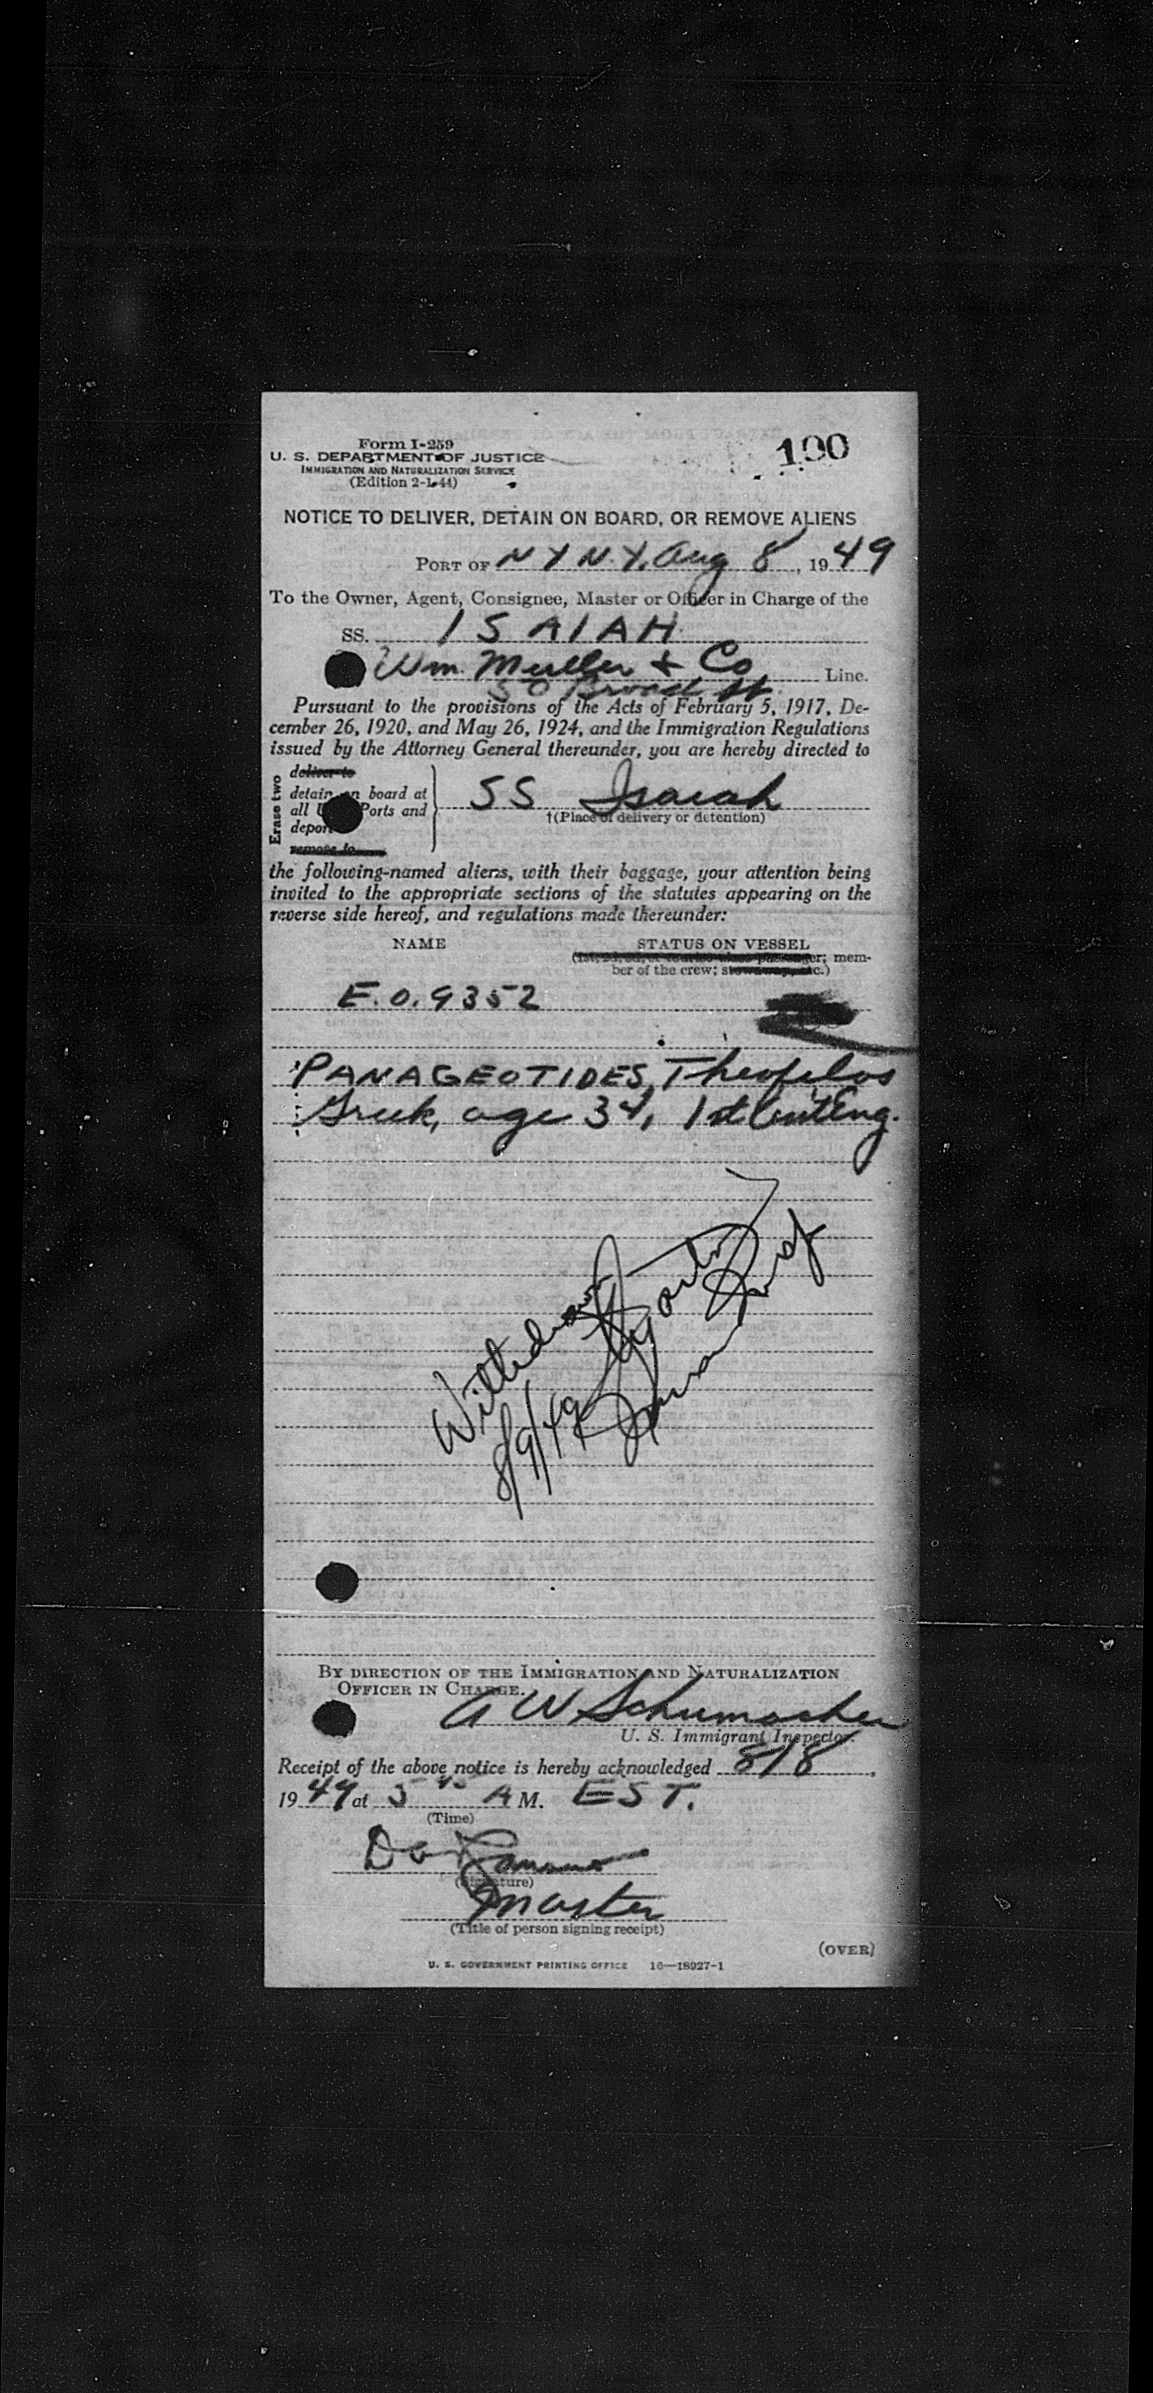 Form I-259
U. S. DEPARTMENT OF JUSTICE
IMMIGRATION AND NATURALIZATION SERVICE
(Edition 2-1-44)
100
NOTICE TO DELIVER, DETAIN ON BOARD, OR REMOVE ALIENS
PORT OF N Y N.Y. Aug 8, 1949
To the Owner, Agent, Consignee, Master or Officer in Charge of the
SS. ISAIAH
Wm. Muller & Co Line.
50 Broad St.
Pursuant to the provisions of the Acts of February 5, 1917, De-
cember 26, 1920, and May 26, 1924, and the Immigration Regulations
issued by the Attorney General thereunder, you are hereby directed to
Erase two
deliver to
detain on board at
all U Ports and
deport
remove to
SS Isaiah
†(Place of delivery or detention)
the following-named aliens, with their baggage, your attention being
invited to the appropriate sections of the statutes appearing on the
reverse side hereof, and regulations made thereunder:
NAME STATUS ON VESSEL
(1st, 2d, 3d, or tourist class passenger; mem-
ber of the crew; stowaway, etc.)
E.O. 9352
PANAGEOTIDES, Theofilos
Greek, age 34, 1st Eng.
Withdrawn
8/9/49
BY DIRECTION OF THE IMMIGRATION AND NATURALIZATION
OFFICER IN CHARGE.
A W Schumacher
U. S. Immigrant Inspector.
Receipt of the above notice is hereby acknowledged 8/8,
1949 at 5 45 A M. EST.
(Time)
(Signature)
Master
(Title of person signing receipt)
(OVER)
U. S. GOVERNMENT PRINTING OFFICE 16—18927-1